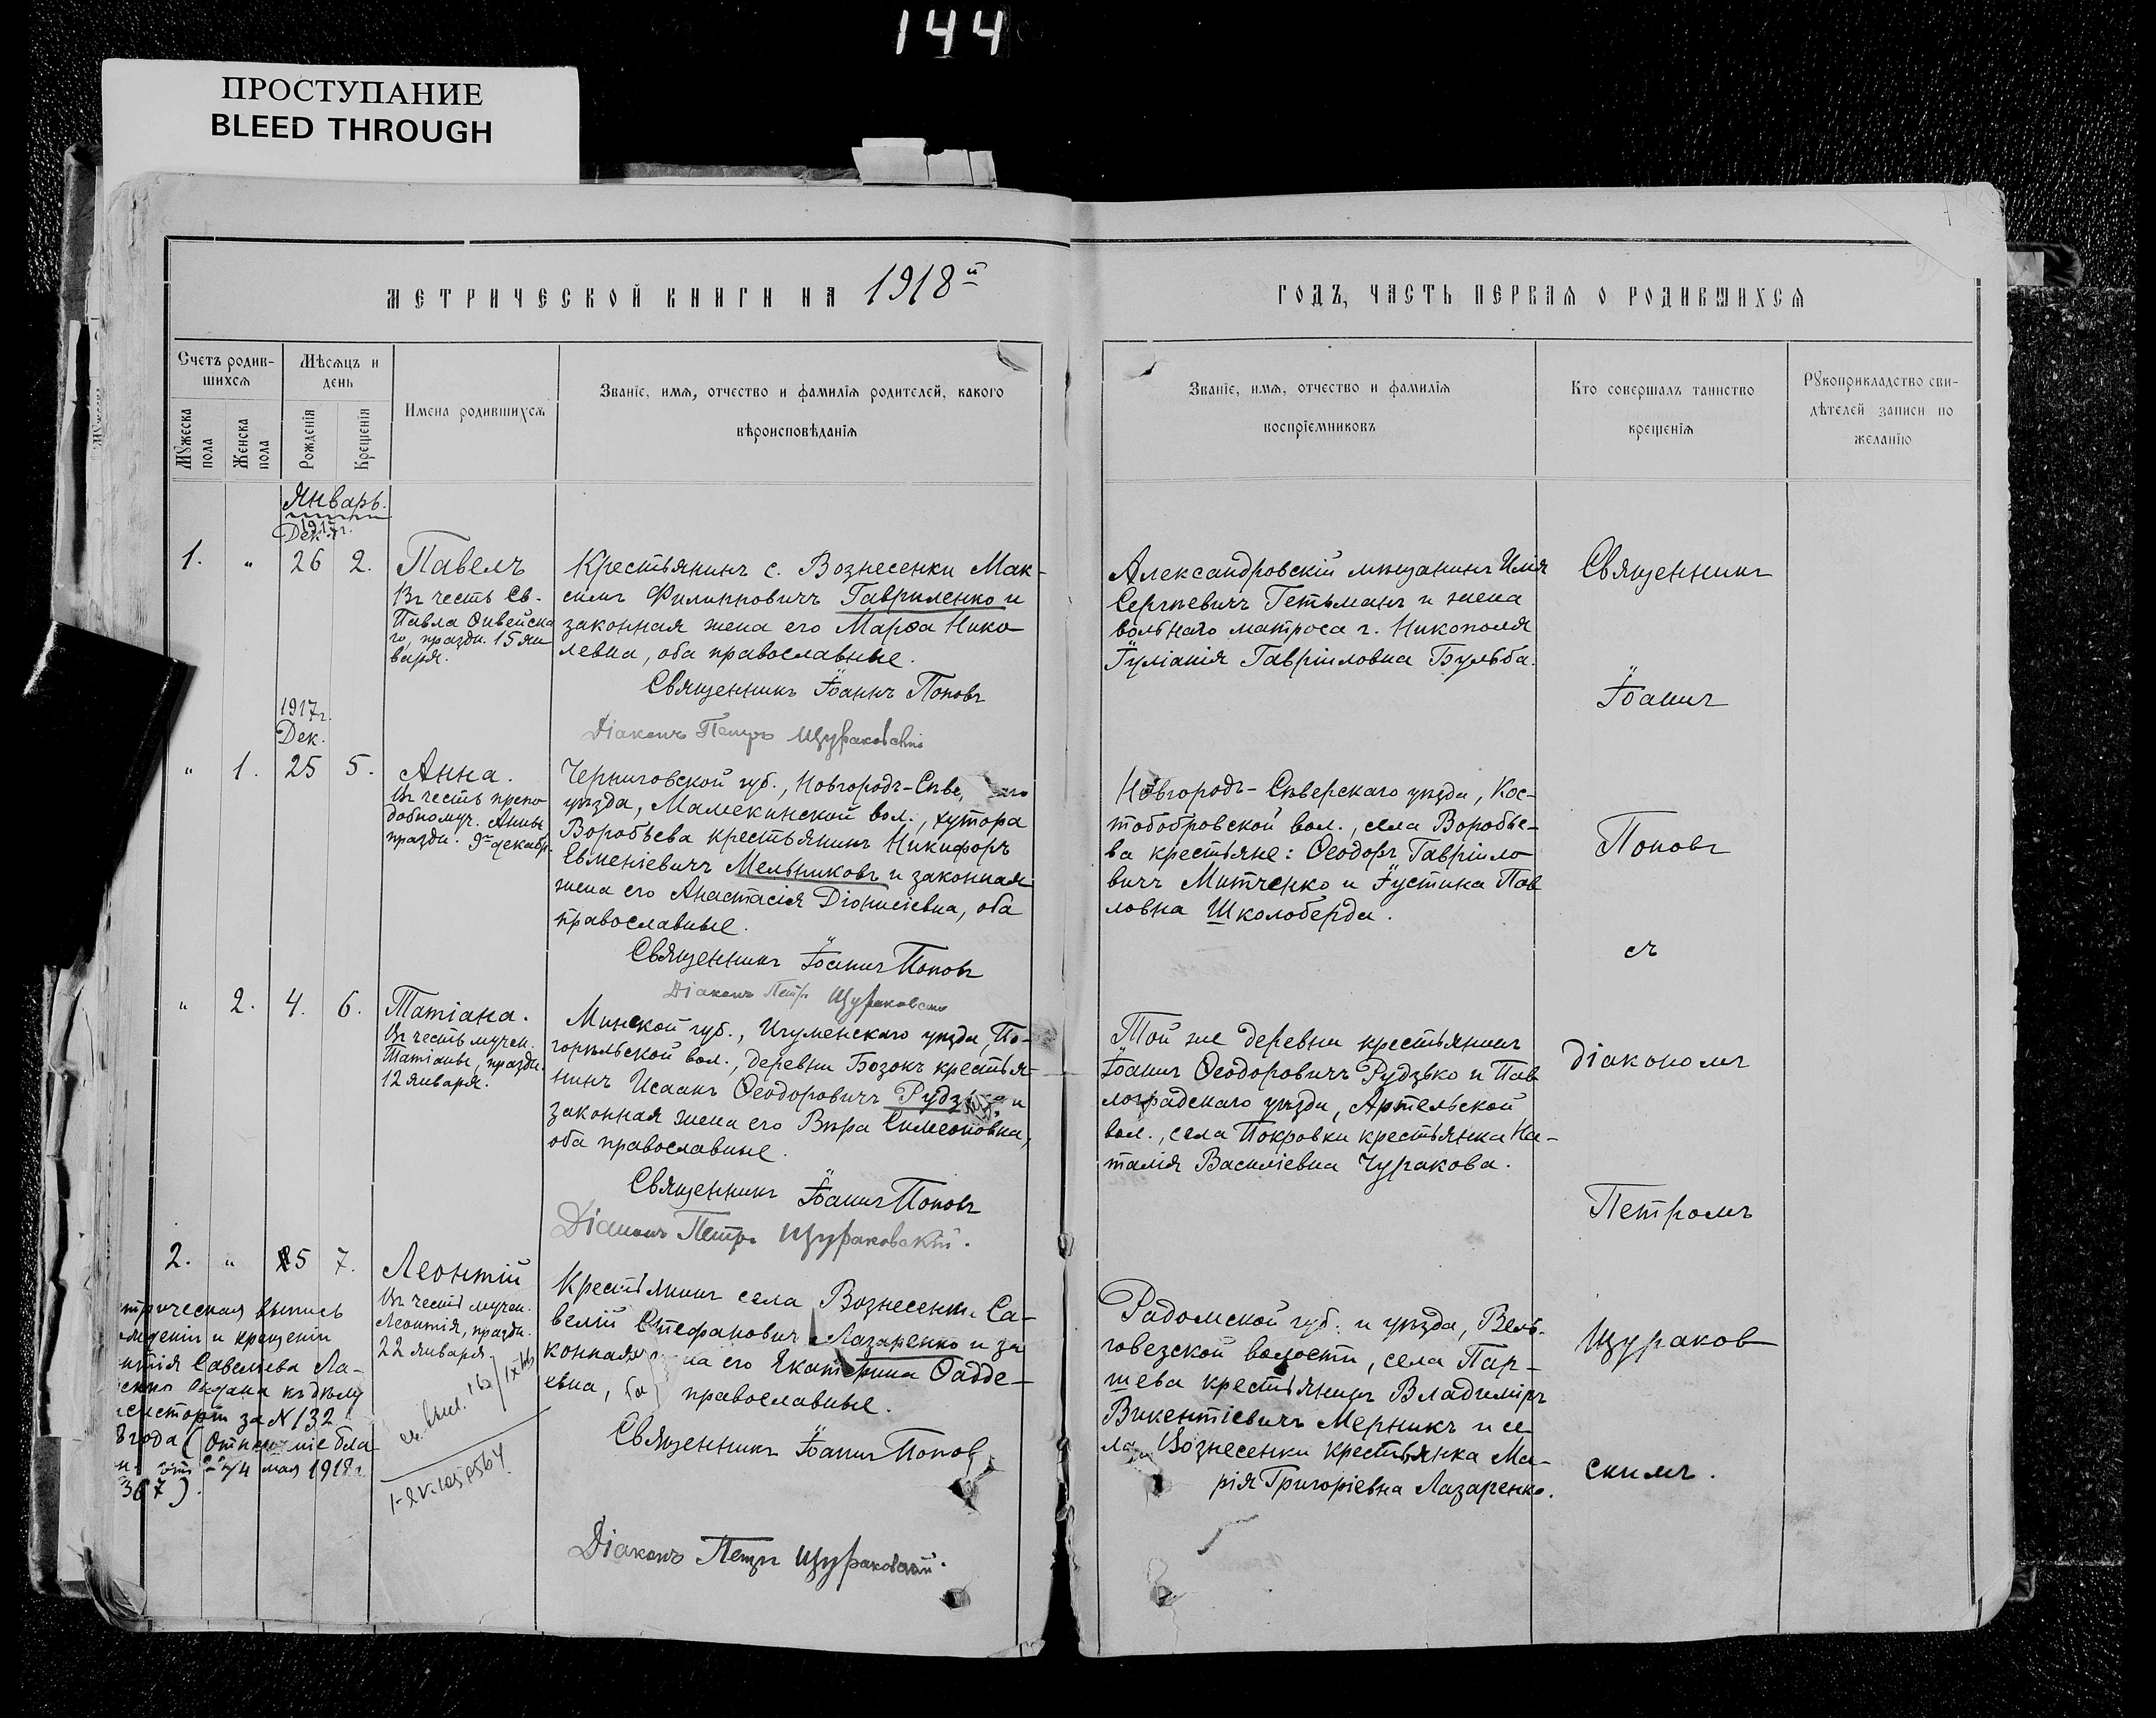 144
ПРОСТУПАНИЕ
BLEED THROUGH
МЕТРИЧЕСКОЙ КНИГИ НА 1918й
ГОДЪ, ЧАСТЬ ПЕРВАЯ О РОДИВШИХСЯ
Счетъ родив-
шихся
Мужеска
пола
Женска
пола
Мѣсяцъ и
день
Рожденія
Крещенія
Имена родившихся
Званіе, имя, отчество и фамилія родителей, какого
вѣроисповѣданія
Званіе, имя, отчество и фамилія
воспріемниковъ
Кто совершалъ таинство
крещенія
Рукоприкладство сви-
дѣтелей записи по
желанію
Январь.
1917г.
Дек.
1. " 26 2.
Павелъ
Въ честь Св.
Павла Ѳивейска
го, праздн. 15 ян
варя.
Крестьянинъ с. Вознесенки Мак-
симъ Филипповичъ Гавриленко и
законная жена его Марѳа Нико
левна, оба православные.
Священникъ Іоаннъ Поповъ
Діаконъ Петръ Щураковскій
Александровскій мѣщанинъ Илія
Сергѣевичъ Гетьманъ и жена
вольнаго матроса г. Никополя
Іуліанія Гавріиловна Бульба.
1917г.
Дек.
" 1. 25 5.
Анна.
Въ честь препо
добномуч. Анны
праздн. 9го декабр.
Черниговской губ., Новгородъ-Сѣве
уѣзда, Мамекинской вол., хутора
Воробьева крестьянинъ Никифоръ
Евменіевичъ Мельниковъ и законная
жена его Анастасія Діонисіевна, оба
православные.
Священникъ Іоаннъ Поповъ
Діаконъ Петръ Щураковскій
Новгородъ-Сѣверскаго уѣзда, Кос-
тобобровской вол., села Воробье-
ва крестьяне: Ѳеодоръ Гавріило
вичъ Митченко и Іустина Пав
ловна Школоберда.
" 2. 4. 6.
Татіана.
Въ честь мучен.
Татіаны, праздн.
12 января.
Минской губ., Игуменскаго уѣзда, По-
горѣльской вол., деревни Бозокъ крестья-
нинъ Исаакъ Ѳеодоровичъ и
законная жена его Вѣра Симеоновна,
оба православные.
Священникъ Іоаннъ Поповъ
Діаконъ Петръ Щураковскій.
Той же деревни крестьянинъ
Іоаннъ Ѳеодоровичъ Рудзько и Пав
лоградскаго уѣзда, Артельской
вол., села Покровки крестьянка На-
талія Василіевна Чуракова.
2. " 5 7.
Леонтій
Въ честь мучен.
Леонтія, праздн.
22 января.
Крестьянинъ села Вознесенки Са-
велій Стефановичъ Лазаренко и за
конная на его Екатерина Ѳадде-
евна, ба православные.
Священникъ Іоаннъ Попов
Діаконъ Петръ Щураковскій.
Радомской губ. и уѣзда, Вель-
говезской волости, села Пар-
шева крестьянинъ Владиміръ
Викентіевичъ Мерникъ и се
ла Вознесенки крестьянка Ма-
рія Григоріевна Лазаренко.
трическая выпись
и крещеніи
нтія Савельева Ла-
къ дѣлу
за N 132
года (
4 мая 1918г.
367).
Священникъ
Іоаннъ
Поповъ
съ
діакономъ
Петромъ
Щураков
скимъ.